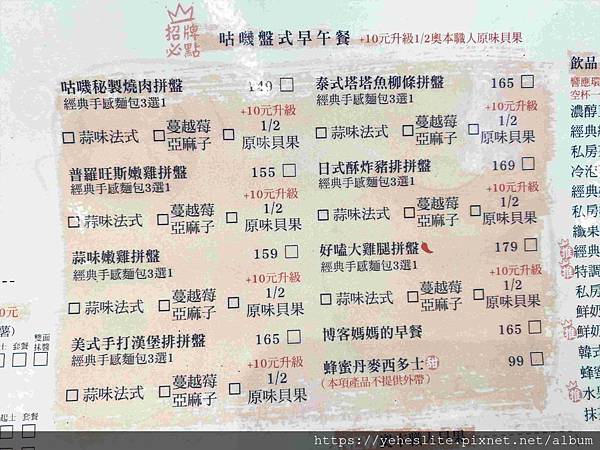 招牌
必點
咕嘰盤式早午餐 +10元升級1/2奧本職人原味貝果
咕嘰秘製燒肉拼盤 149 □
經典手感麵包3選1
+10元升級
□ 蒜味法式 □ 蔓越莓亞麻子 □ 1/2原味貝果
普羅旺斯嫩雞拼盤 155 □
經典手感麵包3選1
+10元升級
□ 蒜味法式 □ 蔓越莓亞麻子 □ 1/2原味貝果
蒜味嫩雞拼盤 159 □
經典手感麵包3選1
+10元升級
□ 蒜味法式 □ 蔓越莓亞麻子 □ 1/2原味貝果
美式手打漢堡排拼盤 165 □
經典手感麵包3選1
+10元升級
□ 蒜味法式 □ 蔓越莓亞麻子 □ 1/2原味貝果
泰式塔塔魚柳條拼盤 165 □
經典手感麵包3選1
+10元升級
□ 蒜味法式 □ 蔓越莓亞麻子 □ 1/2原味貝果
日式酥炸豬排拼盤 169 □
經典手感麵包3選1
+10元升級
□ 蒜味法式 □ 蔓越莓亞麻子 □ 1/2原味貝果
好嗑大雞腿拼盤 179 □
經典手感麵包3選1
+10元升級
□ 蒜味法式 □ 蔓越莓亞麻子 □ 1/2原味貝果
博客媽媽的早餐 165 □
蜂蜜丹麥西多士 甜 99 □
(本項產品不提供外帶)
0元
薯)
雙面
士 套餐 抹醬
起士 套餐
飲品
響應環
空杯一
濃醇
經典
私房
冷泡
經典
私房
纖果
推 經典
推 特調
私房
鮮奶
鮮奶
韓式
蜂蜜
推 水果
抹茶
https://yeheslite.pixnet.net/album